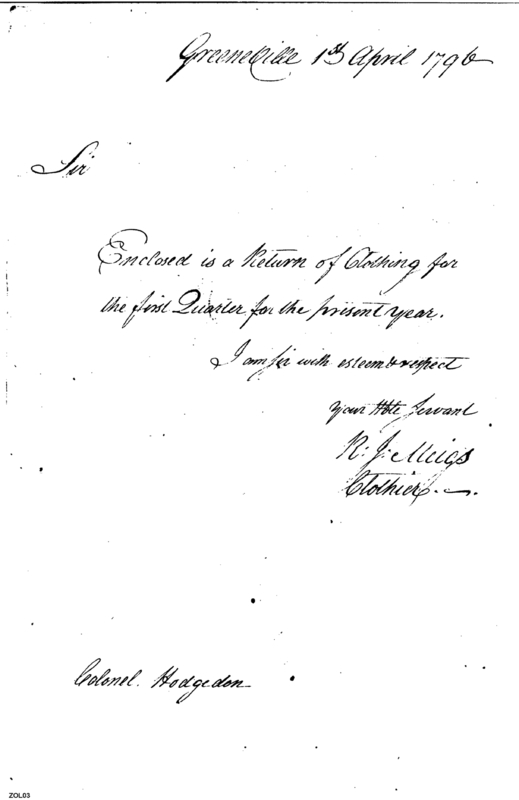 Greeneville 1st April 1796
Sir
Enclosed is a Return of Clothing for
the first Quarter for the present year.
I am Sir with esteem & respect
your Hble Servant
R: J: Meigs
Clothier.
Colonel. Hodgedon
ZOL03